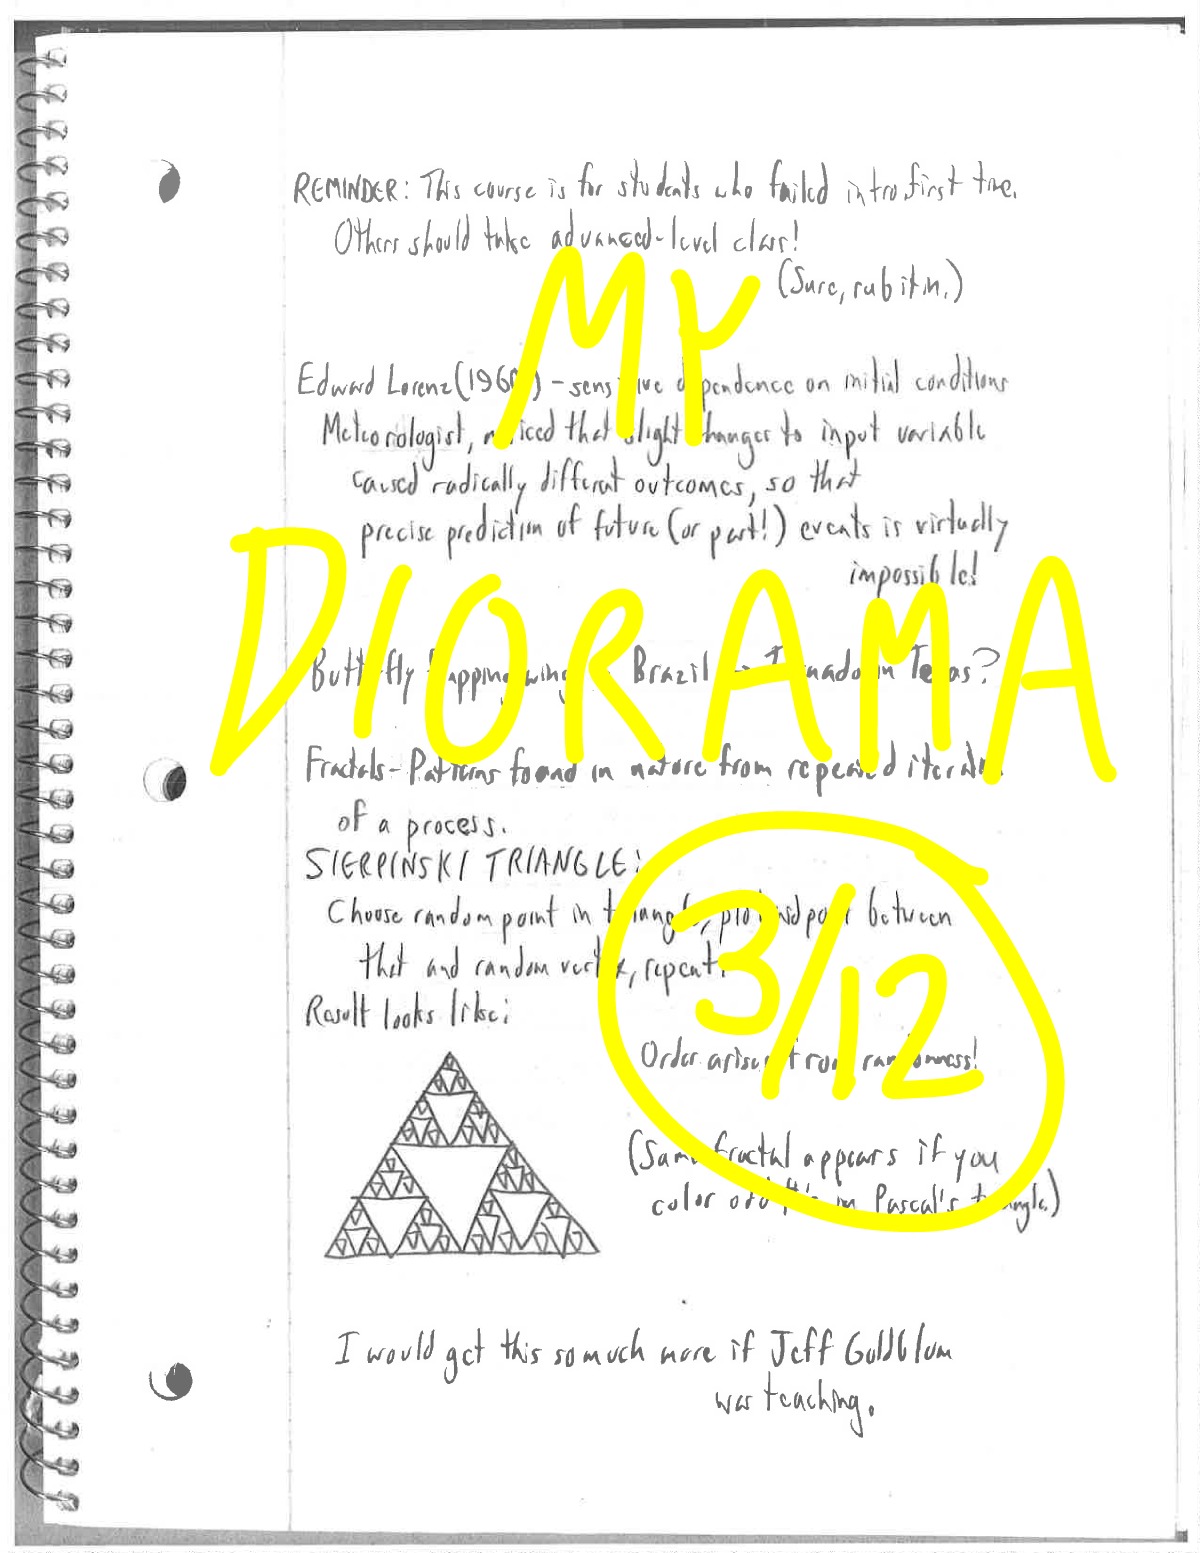 REMINDER: This course is for students who failed intro first time.
Others should take advanced-level class!
(Sure, rub it in.)
MY
Edward Lorenz (1960s) - sensitive dependence on initial conditions
Meteorologist, noticed that slight changes to input variable
caused radically different outcomes, so that
precise prediction of future (or past!) events is virtually
impossible!
DIORAMA
Butterfly flapping wings in Brazil → Tornado in Texas?
Fractals - Patterns found in nature from repeated
of a process.
SIERPINSKI TRIANGLE:
Choose random point in triangle, plot midpoint between
that and random vertex, repeat.
3/12
Result looks like:
Order arises from randomness!
(Same fractal appears if you
color odd #'s in Pascal's triangle.)
I would get this so much more if Jeff Goldblum
was teaching.